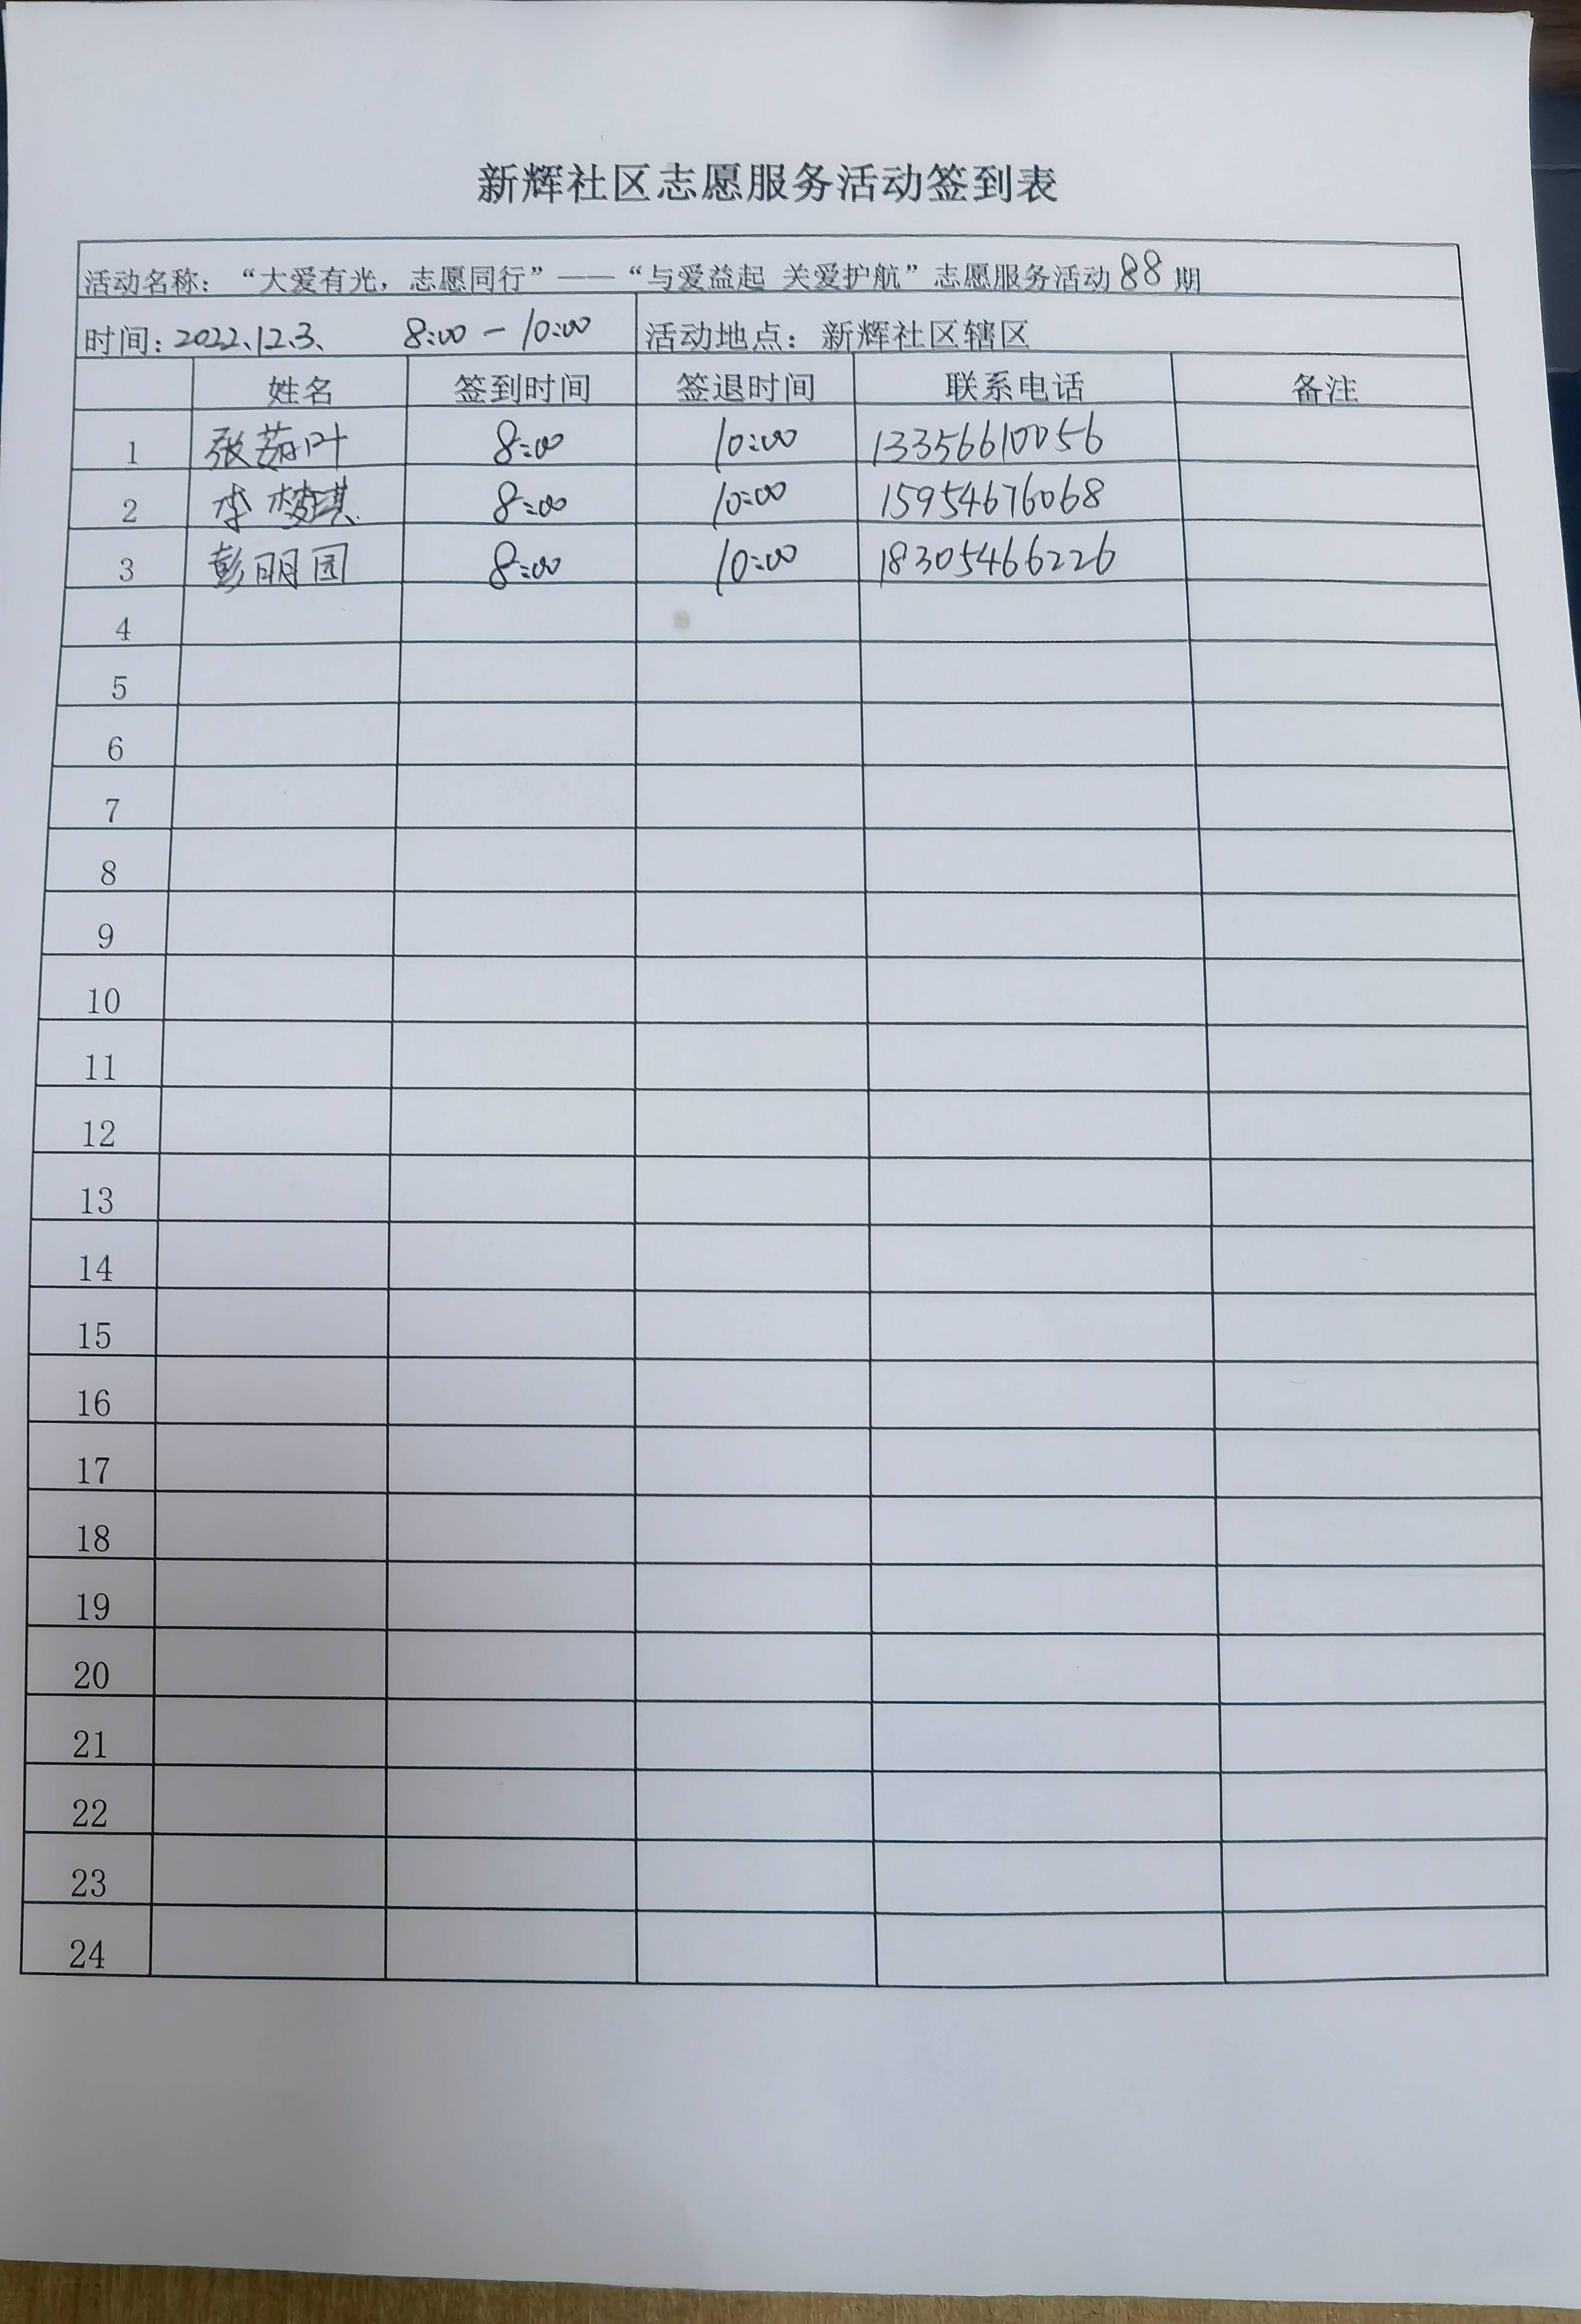 新辉社区志愿服务活动签到表
活动名称：“大爱有光，志愿同行”——“与爱益起 关爱护航”志愿服务活动88期
时间：2022.12.3、 8:00－10:00 活动地点：新辉社区辖区
姓名 签到时间 签退时间 联系电话 备注
1 张茹叶 8:00 10:00 13356610056
2 李梭琪 8:00 10:00 15954676068
3 彭明园 8:00 10:00 18305466226
4
5
6
7
8
9
10
11
12
13
14
15
16
17
18
19
20
21
22
23
24